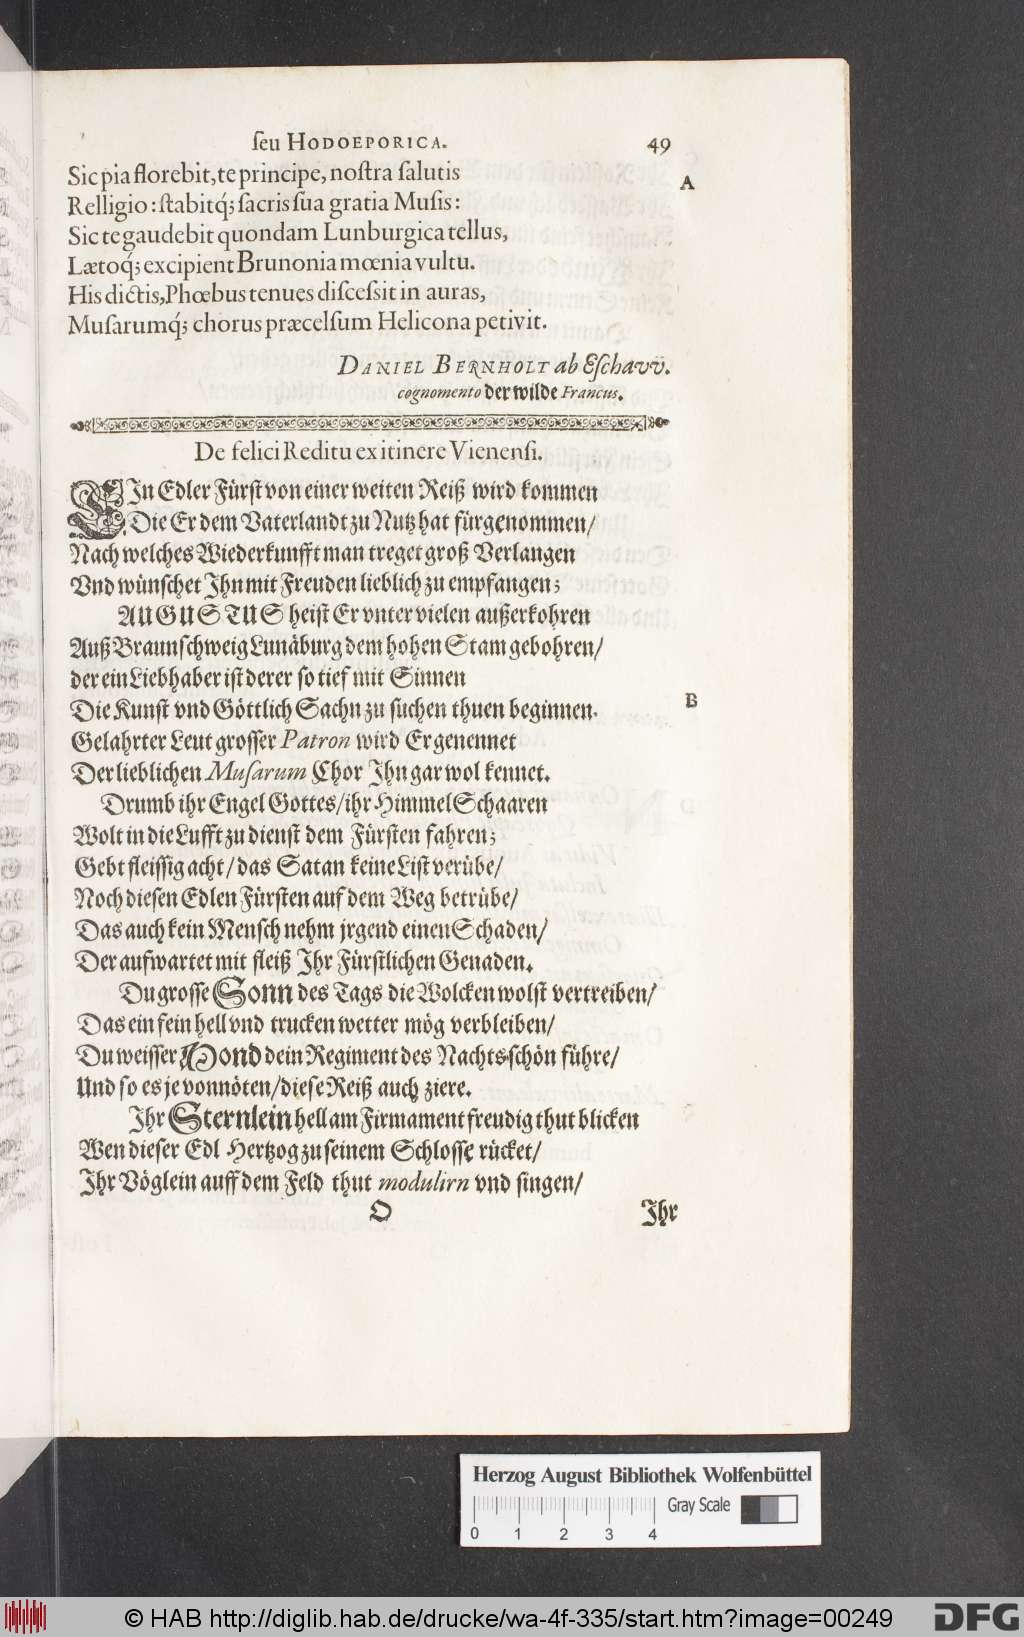 seu HODOEPORICA. 49
Sic pia florebit, te principe, nostra salutis
A
Relligio: stabitq́; sacris sua gratia Musis:
Sic te gaudebit quondam Lunburgica tellus,
Lætoq́; excipient Brunonia mœnia vultu.
His dictis, Phœbus tenues discessit in auras,
Musarumq́; chorus præcelsum Helicona petivit.
DANIEL BERNHOLT ab Eschavv.
cognomento der wilde Francus.
De felici Reditu ex itinere Vienensi.
EIn Edler Fürst von einer weiten Reiß wird kommen
Die Er dem Vaterlandt zu Nutz hat fürgenommen/
Nach welches Wiederkunfft man treget groß Verlangen
Vnd wünschet Ihn mit Freuden lieblich zu empfangen;
AUGUSTUS heist Er vnter vielen außerkohren
Auß Braunschweig Lunäburg dem hohen Stam gebohren/
der ein Liebhaber ist derer so tief mit Sinnen
Die Kunst vnd Göttlich Sachn zu suchen thuen beginnen.
B
Gelahrter Leut grosser Patron wird Er genennet
Der lieblichen Musarum Chor Ihn gar wol kennet.
Drumb ihr Engel Gottes/ ihr Himmel Schaaren
Wolt in die Lufft zu dienst dem Fürsten fahren;
Gebt fleissig acht/ das Satan keine List verübe/
Noch diesen Edlen Fürsten auf dem Weg betrübe/
Das auch kein Mensch nehm jrgend einen Schaden/
Der aufwartet mit fleiß Ihr Fürstlichen Genaden.
Du grosse Sonn des Tags die Wolcken wolst vertreiben/
Das ein fein hell vnd trucken wetter mög verbleiben/
Du weisser Mond dein Regiment des Nachts schön führe/
Und so es je vonnöten/ diese Reiß auch ziere.
Ihr Sternlein hell am Firmament freudig thut blicken
Wen dieser Edl Hertzog zu seinem Schlosse rücket/
Ihr Vöglein auff dem Feld thut modulirn vnd singen/
O Ihr
Herzog August Bibliothek Wolfenbüttel
Gray Scale
0 1 2 3 4
© HAB http://diglib.hab.de/drucke/wa-4f-335/start.htm?image=00249
DFG